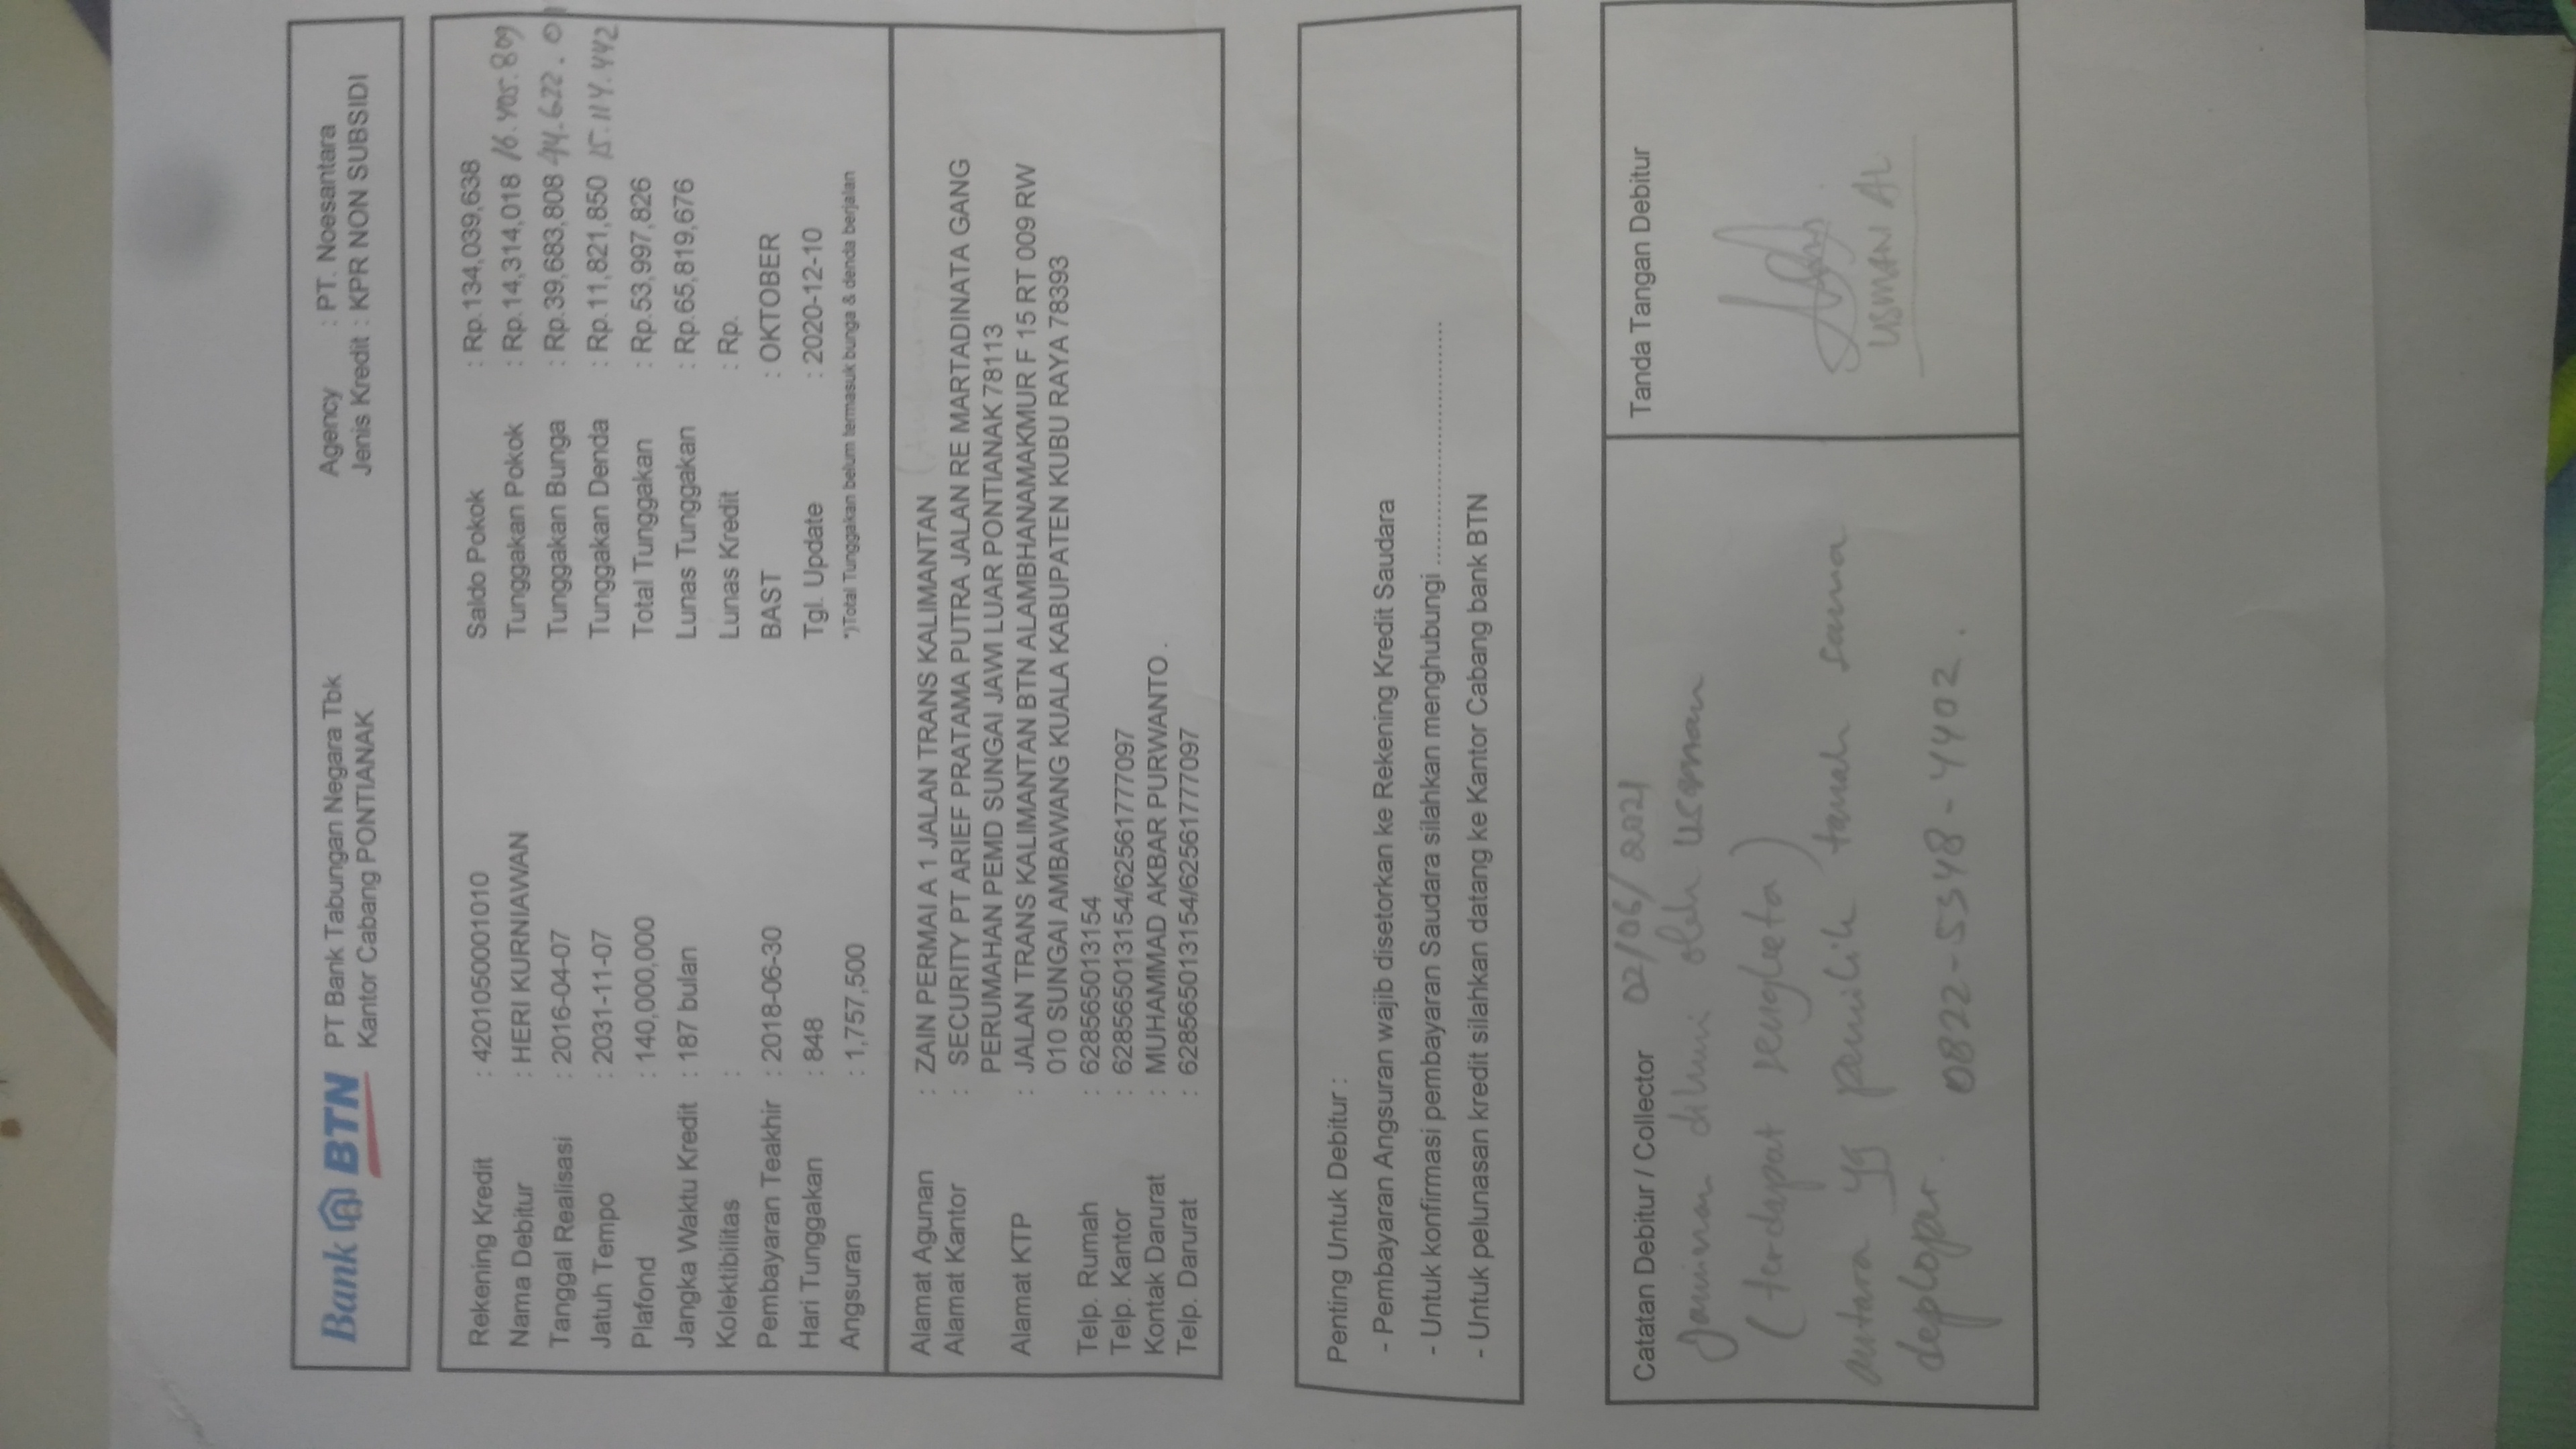 Bank BTN PT Bank Tabungan Negara Tbk Agency : PT. Noesantara
Kantor Cabang PONTIANAK Jenis Kredit : KPR NON SUBSIDI
Rekening Kredit : 4201050001010 Saldo Pokok : Rp.134,039,638
Nama Debitur : HERI KURNIAWAN Tunggakan Pokok : Rp.14,314,018 16.405.809
Tanggal Realisasi : 2016-04-07 Tunggakan Bunga : Rp.39,683,808 44.622.01
Jatuh Tempo : 2031-11-07 Tunggakan Denda : Rp.11,821,850 15.114.442
Plafond : 140,000,000 Total Tunggakan : Rp.53,997,826
Jangka Waktu Kredit : 187 bulan Lunas Tunggakan : Rp.65,819,676
Kolektibilitas : Lunas Kredit : Rp.
Pembayaran Teakhir : 2018-06-30 BAST : OKTOBER
Hari Tunggakan : 848 Tgl. Update : 2020-12-10
Angsuran : 1,757,500 *)Total Tunggakan belum termasuk bunga & denda berjalan
Alamat Agunan : ZAIN PERMAI A 1 JALAN TRANS KALIMANTAN
Alamat Kantor : SECURITY PT ARIEF PRATAMA PUTRA JALAN RE MARTADINATA GANG
PERUMAHAN PEMD SUNGAI JAWI LUAR PONTIANAK 78113
Alamat KTP : JALAN TRANS KALIMANTAN BTN ALAMBHANAMAKMUR F 15 RT 009 RW
010 SUNGAI AMBAWANG KUALA KABUPATEN KUBU RAYA 78393
Telp. Rumah : 6285650131​54
Telp. Kantor : 628565013154/62561777097
Kontak Darurat : MUHAMMAD AKBAR PURWANTO .
Telp. Darurat : 628565013154/62561777097
Penting Untuk Debitur :
- Pembayaran Angsuran wajib disetorkan ke Rekening Kredit Saudara
- Untuk konfirmasi pembayaran Saudara silahkan menghubungi ..............................
- Untuk pelunasan kredit silahkan datang ke Kantor Cabang bank BTN
Catatan Debitur / Collector 02/06/2021
Jaminan dihuni oleh usman
(terdapat sengketa)
antara yg pemilik tanah sama
deploper. 0822-5348-4402.
Tanda Tangan Debitur
USMAN AL